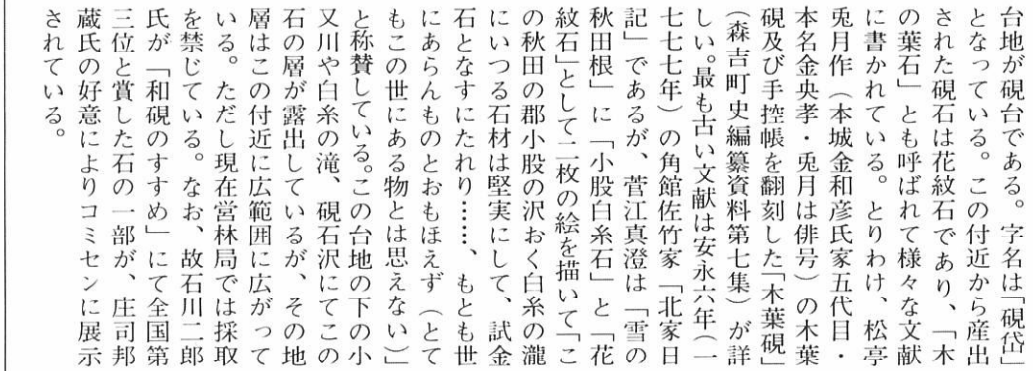 台地が硯台である。字名は「硯岱」
となっている。この付近から産出
された硯石は花紋石であり、「木
の葉石」とも呼ばれて様々な文献
に書かれている。とりわけ、松亭
兎月作（本城金和彦氏家五代目・
本名金央孝・兎月は俳号）の木葉
硯及び手控帳を翻刻した「木葉硯」
（森吉町史編纂資料第七集）が詳
しい。最も古い文献は安永六年（一
七七七年）の角館佐竹家「北家日
記」であるが、菅江真澄は「雪の
秋田根」に「小股白糸石」と「花
紋石」として二枚の絵を描いて「こ
の秋田の郡小股の沢おく白糸の瀧
にいつる石材は堅実にして、試金
石となすにたれり……、もとも世
にあらんものとおもほえず（とて
もこの世にある物とは思えない）」
と称賛している。この台地の下の小
又川や白糸の滝、硯石沢にてこの
石の層が露出しているが、その地
層はこの付近に広範囲に広がって
いる。ただし現在営林局では採取
を禁じている。なお、故石川二郎
氏が「和硯のすすめ」にて全国第
三位と賞した石の一部が、庄司邦
蔵氏の好意によりコミセンに展示
されている。